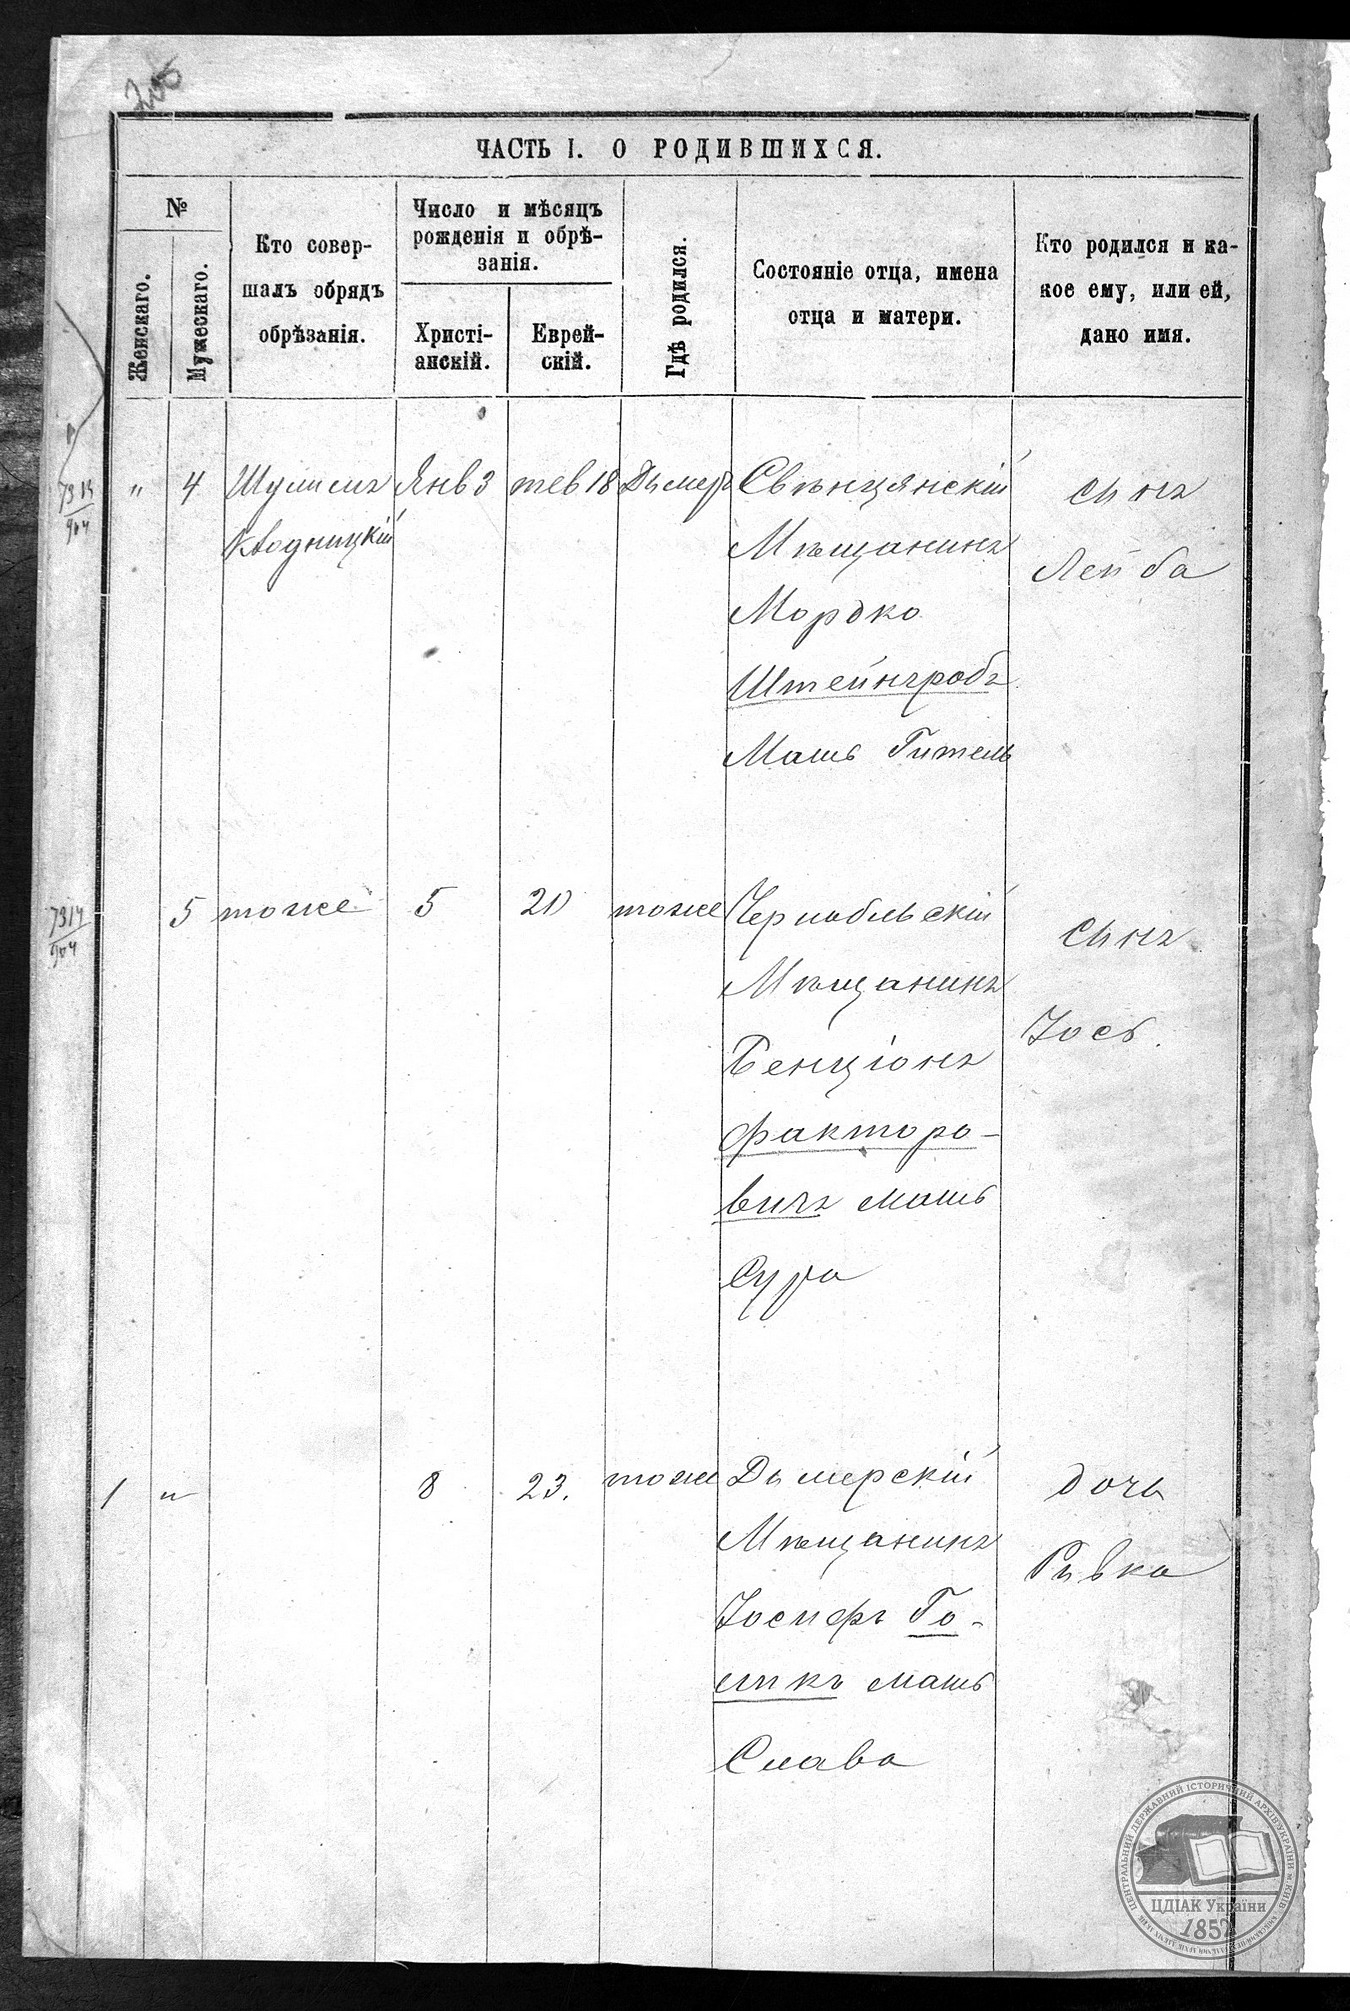 205
ЧАСТЬ I. О РОДИВШИХСЯ.
№
Женскаго.
Мужескаго.
Кто совер-
шалъ обрядъ
обрѣзанія.
Число и мѣсяцъ
рожденія и обрѣ-
занія.
Христі-
анскій.
Еврей-
скій.
Гдѣ родился.
Состояніе отца, имена
отца и матери.
Кто родился и ка-
кое ему, или ей,
дано имя.
7314
904
" 4 Янв 3 тев 18 Дымер Свѣнцянскій сынъ
Мѣщанинъ Лейба
Мордко
Штейнгробъ
Мать Гитель
7314
904
5 тоже 5 20 тоже Чернобльскій сынъ
Мѣщанинъ
Іось.
Бенціонъ
Факторо-
вичъ мать
Сура
1 " 8 23. тоже Дымерскій дочь
Мѣщанинъ Ривка
Іосифъ Го-
ликъ мать
Слава
ЦЕНТРАЛЬНИЙ ДЕРЖАВНИЙ ІСТОРИЧНИЙ АРХІВ УКРАЇНИ м. КИЇВ
ЦДІАК України
1852